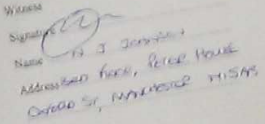 Witness
Signature
Name N J
Address 3RD FLOOR, PETER HOUSE
OXFORD ST, MANCHESTER M1 5AB